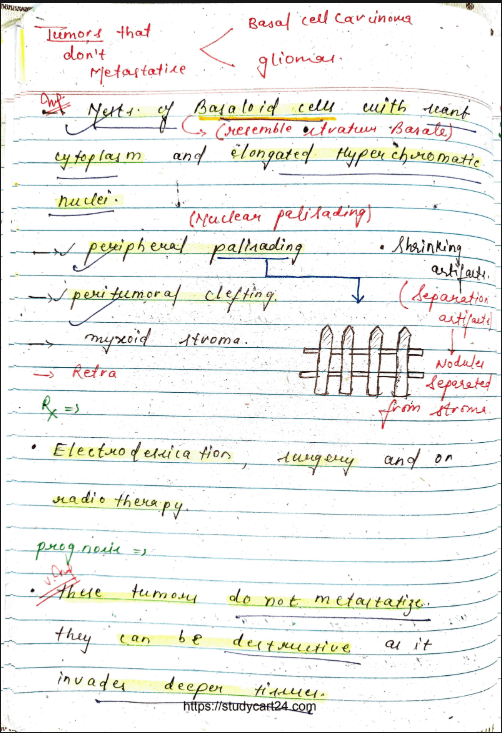 Tumors that
don't
Metastatise
Basal cell Carcinoma
gliomas.
Imp.
Nests of Basaloid cells with scant
(resemble stratum Basale)
cytoplasm and elongated Hyperchromatic
nuclei.
(Nuclear palisading)
→ peripheral palisading
→ peritumoral clefting.
→ myxoid stroma.
→ Retra
• Shrinking
artifacts.
(Separation
artifacts)
Nodules
Separated
from stroma
Rx =>
• Electrodessication, surgery and on
radiotherapy.
prognosis =>
v.Imp
• these tumors do not metastatize.
they can be destructive as it
invades deeper tissues.
https://studycart24.com